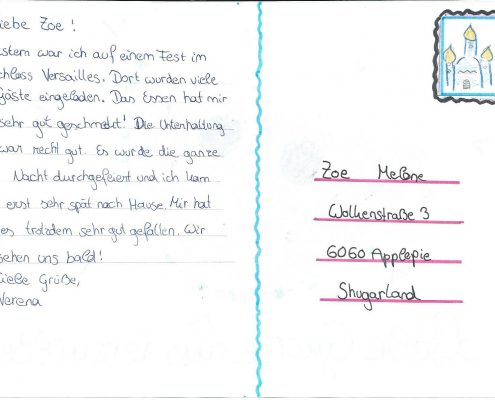 iebe Zoe !
stern war ich auf einem Fest im
chloss Versailles. Dort wurden viele
Gäste eingeladen. Das Essen hat mir
sehr gut geschmeckt! Die Unterhaltung
war recht gut. Es wurde die ganze
Nacht durchgefeiert und ich kam
erst sehr spät nach Hause. Mir hat
es trotzdem sehr gut gefallen. Wir
sehen uns bald!
Liebe Grüße,
Verena
Zoe Melone
Wolkenstraße 3
6060 Applepie
Shugarland